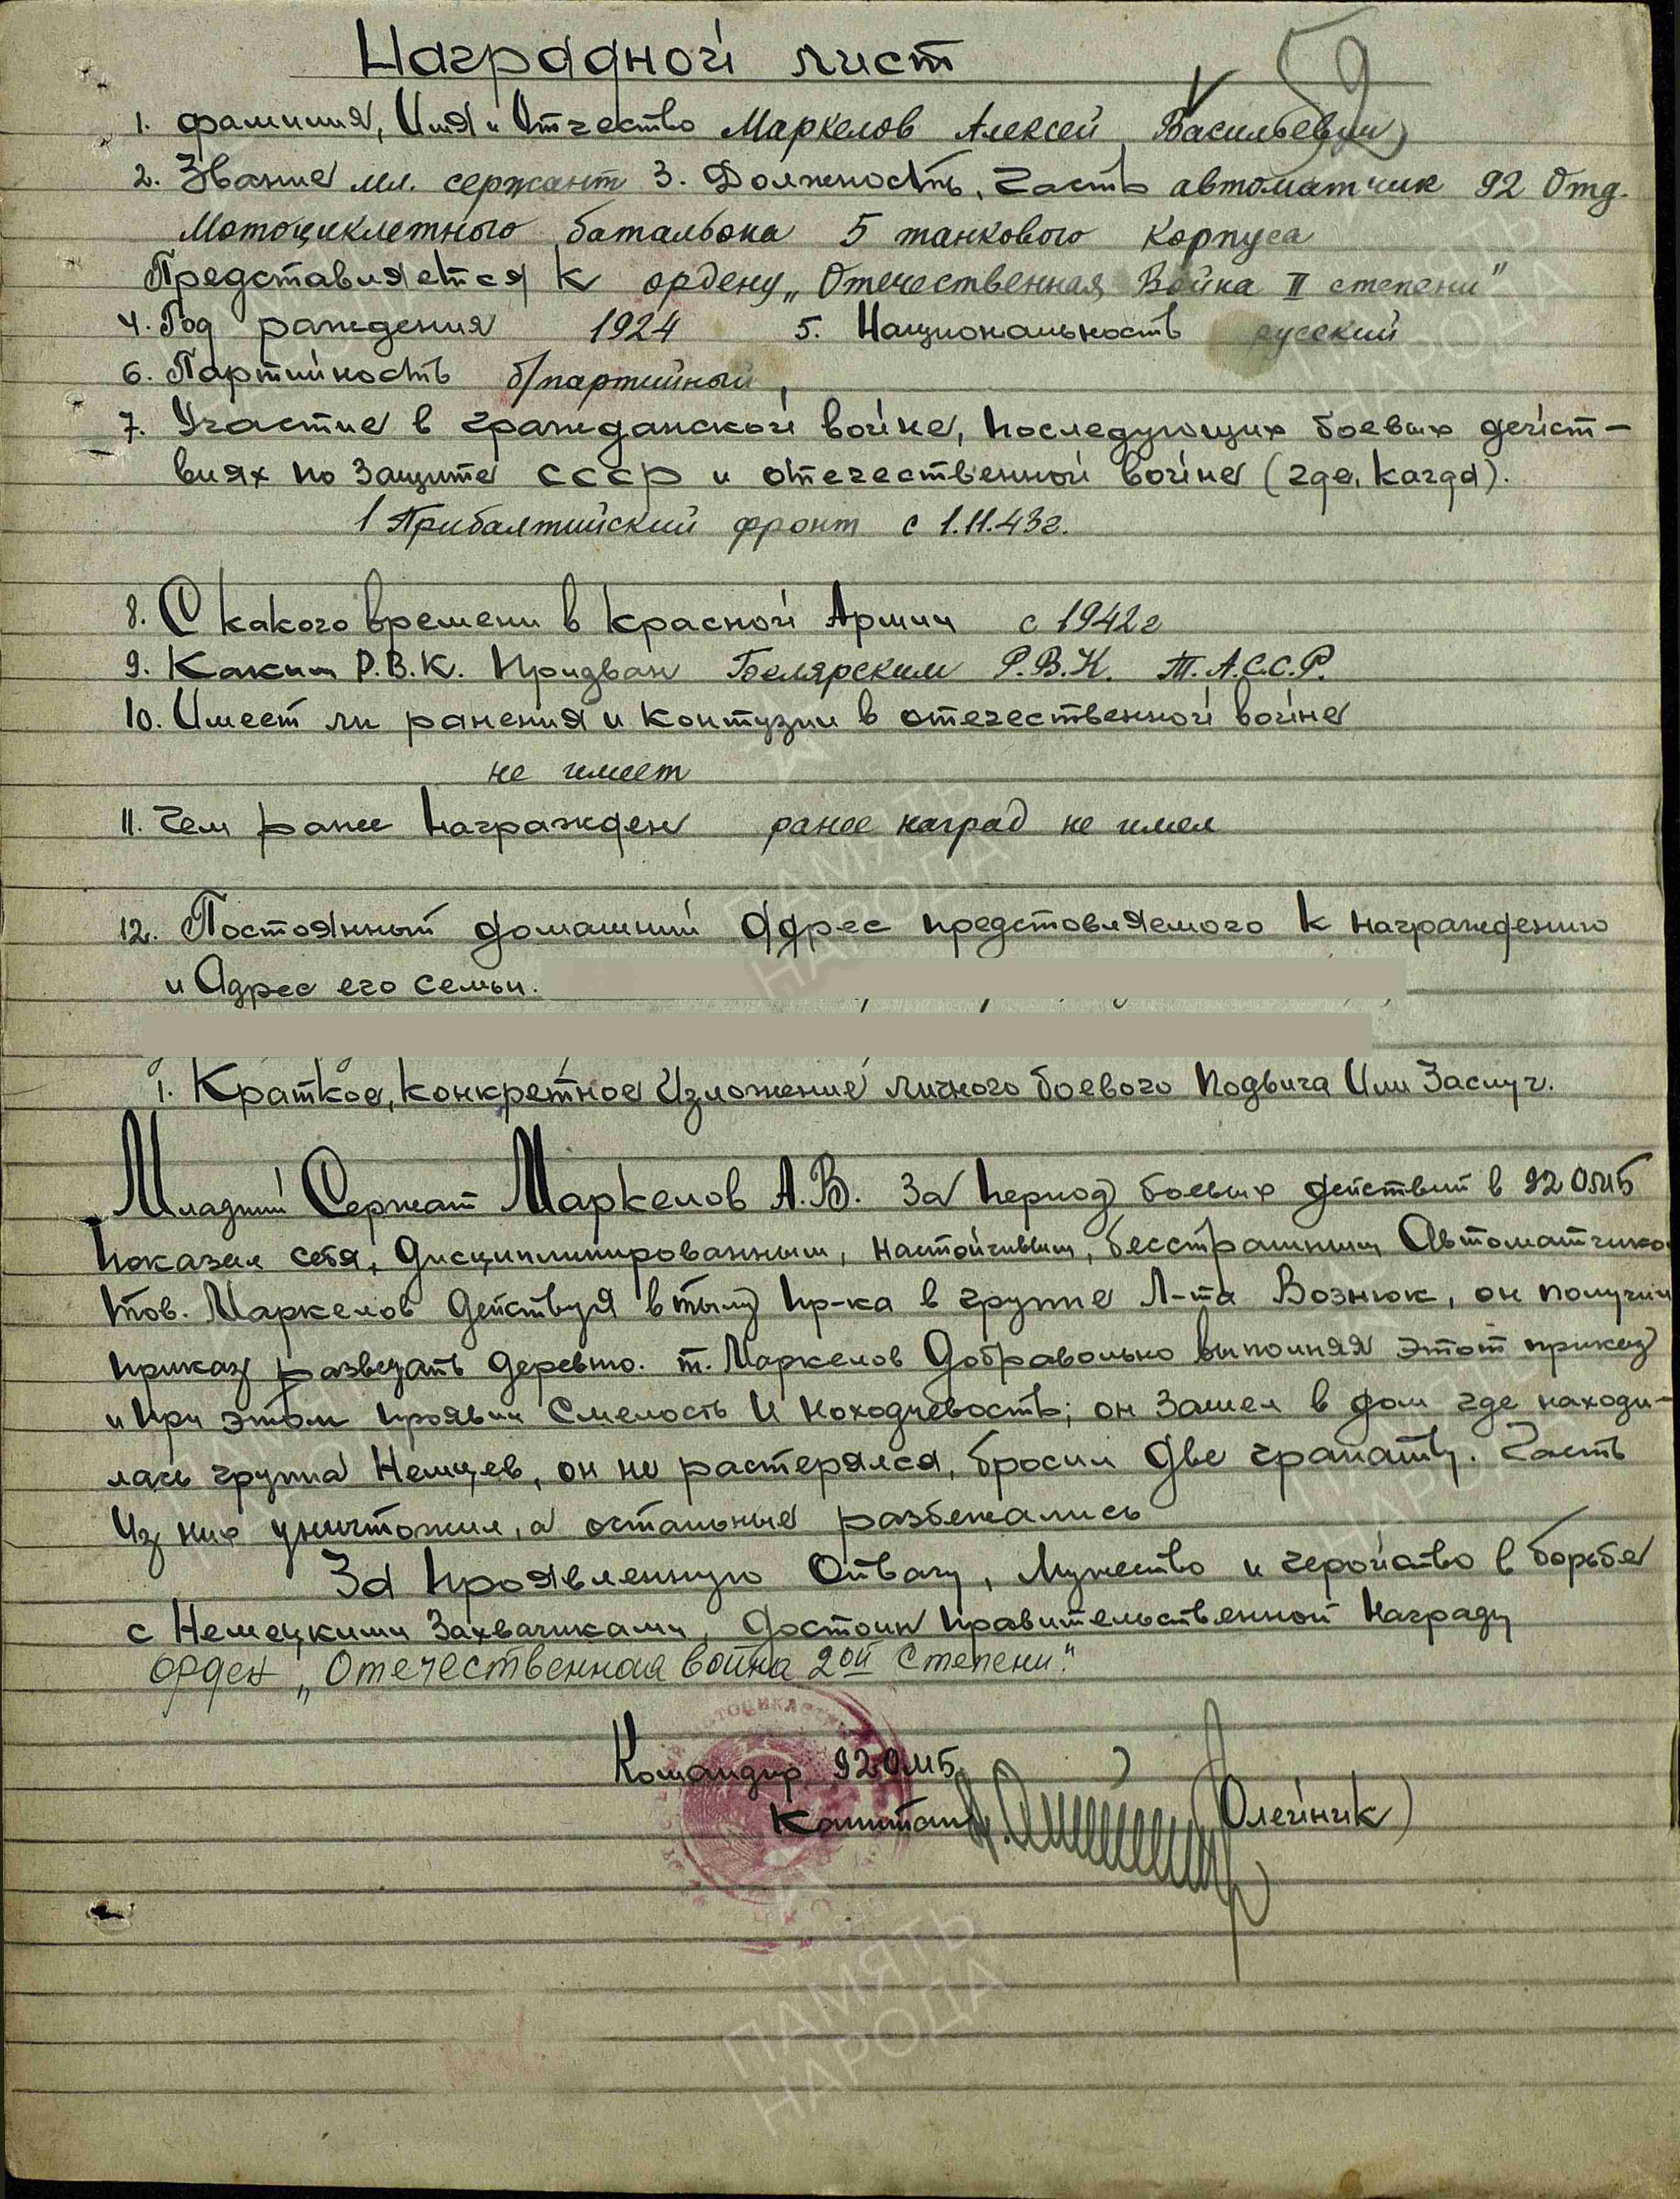 Наградной лист
59
1. Фамилия, Имя и Отчество Маркелов Алексей Васильевич
2. Звание мл. сержант 3. Должность, Часть автоматчик 92 Отд.
Мотоциклетного батальона 5 танкового Корпуса
Представляется к ордену „Отечественная Война II степени"
4. Год раждения 1924 5. Национальность русский
6. Партийность б/партийный,
7. Участие в гражданской войне, последующих боевых дейст-
виях по защите СССР и отечественной войне (где, кагда).
1 Прибалтийский фронт с 1.11.43г.
8. С какого времени в Красной Армии с 1942г
9. Каким Р.В.К. Призван Билярским Р.В.К. Т.А.С.С.Р.
10. Имеет ли ранения и контузии в отечественной войне
не имеет
11. Чем ранее награжден ранее наград не имел
12. Постоянный домашний Адрес представляемого к награждению
и Адрес его семьи.
1. Краткое, конкретное Изложение личного боевого Подвига Или Заслуг.
Младший Сержат Маркелов А.В. За период боевых действий в 92 ОМБ
показал себя, Дисциплинированным, настойчивым, бесстрашным Автоматчико
тов. Маркелов Действуя в тылу пр-ка в группе Л-та Вознюк, он получил
приказ разведать деревню. т. Маркелов Добравольно выполняя этот приказ
и при этом проявил Смелость И находчевость; он Зашел в дом где находи-
лась группа Немцев, он не растерялся, бросил Две гранаты. Часть
Из них уничтожил, а остальные разбежались
За проявленную Отвагу, Мужество и геройство в борьбе
с Немецкими Захватчиками, Достоин правительственной Награды
орден „Отечественная война 2ой Степени."
Командир 92 ОМБ
Капитан (Олейник)
ПАМЯТЬ
НАРОДА